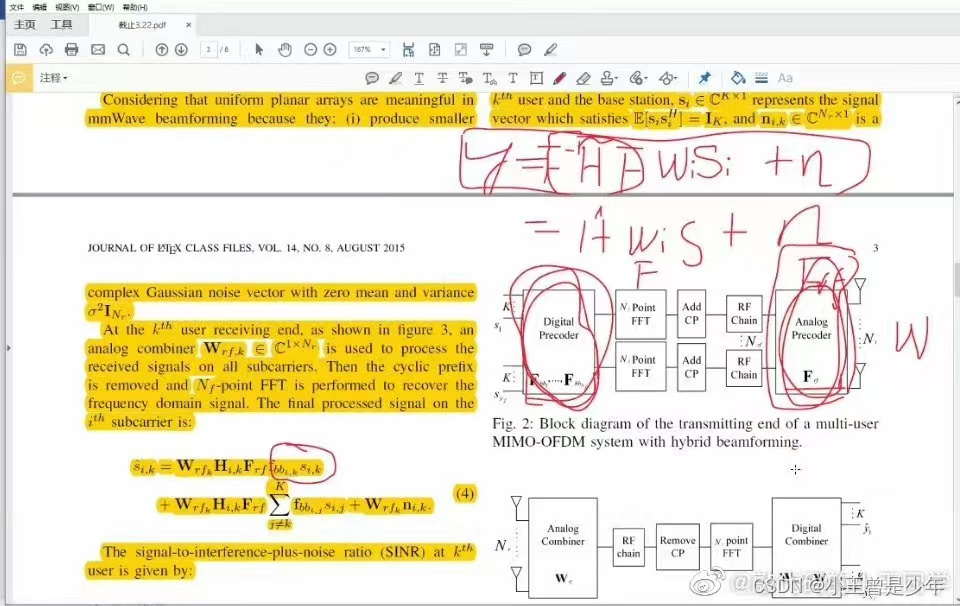 文件 编辑 视图(V) 窗口(W) 帮助(H)
主页 工具 截止3.22.pdf ×
3 / 6 167%
注释
Aa
Considering that uniform planar arrays are meaningful in
mmWave beamforming because they: (i) produce smaller
k^th user and the base station, s_i ∈ ℂ^{K×1} represents the signal
vector which satisfies 𝔼[s_i s_i^H] = I_K, and n_{i,k} ∈ ℂ^{N_r×1} is a
= H W_i S + n
F
JOURNAL OF LATEX CLASS FILES, VOL. 14, NO. 8, AUGUST 2015
3
complex Gaussian noise vector with zero mean and variance
σ²I_{N_r}.
At the k^th user receiving end, as shown in figure 3, an
analog combiner W_{rf,k} ∈ ℂ^{1×N_r} is used to process the
received signals on all subcarriers. Then the cyclic prefix
is removed and N_f-point FFT is performed to recover the
frequency domain signal. The final processed signal on the
i^th subcarrier is:
ŝ_{i,k} = W_{rf_k} H_{i,k} F_{rf} f_{bb_{i,k}} s_{i,k}
+ W_{rf_k} H_{i,k} F_{rf} ∑_{j≠k}^{K} f_{bb_{i,j}} s_{i,j} + W_{rf_k} n_{i,k}.
(4)
The signal-to-interference-plus-noise ratio (SINR) at k^th
user is given by:
K
K
Digital
Precoder
N_f Point
FFT
N_f Point
FFT
Add
CP
Add
CP
RF
Chain
RF
Chain
Analog
Precoder
F_rf
W
Fig. 2: Block diagram of the transmitting end of a multi-user
MIMO-OFDM system with hybrid beamforming.
N_r
Analog
Combiner
RF
chain
Remove
CP
N_f point
FFT
Digital
Combiner
K
CSDN @小王曾是少年